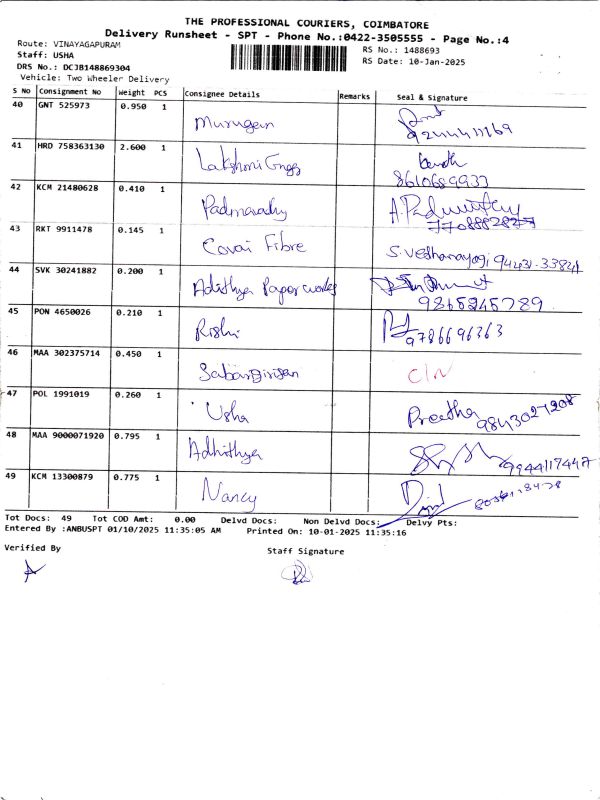 THE PROFESSIONAL COURIERS, COIMBATORE
Delivery Runsheet - SPT - Phone No.:0422-3505555 - Page No.:4
Route: VINAYAGAPURAM RS No.: 1488693
Staff: USHA RS Date: 10-Jan-2025
DRS No.: DCJB148869304
Vehicle: Two Wheeler Delivery
S No Consignment No Weight PCS Consignee Details Remarks Seal & Signature
40 GNT 525973 0.950 1 Murugan
41 HRD 758363130 2.600 1 Lakshmi Engg 8610689933
42 KCM 21480628 0.410 1 Padmavathy 7708882877
43 RKT 9911478 0.145 1 Covai Fibre S.vedhanayagi 94431-33821
44 SVK 30241882 0.200 1 Adithya Paper works 9865245789
45 PON 4650026 0.210 1 Rishi 9786696363
46 MAA 302375714 0.450 1 C/N
47 POL 1991019 0.260 1 Usha Preetha 9843027208
48 MAA 9000071920 0.795 1 Adhithya 9944117447
49 KCM 13300879 0.775 1 Nancy
Tot Docs: 49 Tot COD Amt: 0.00 Delvd Docs: Non Delvd Docs: Delvy Pts:
Entered By :ANBUSPT 01/10/2025 11:35:05 AM Printed On: 10-01-2025 11:35:16
Verified By Staff Signature